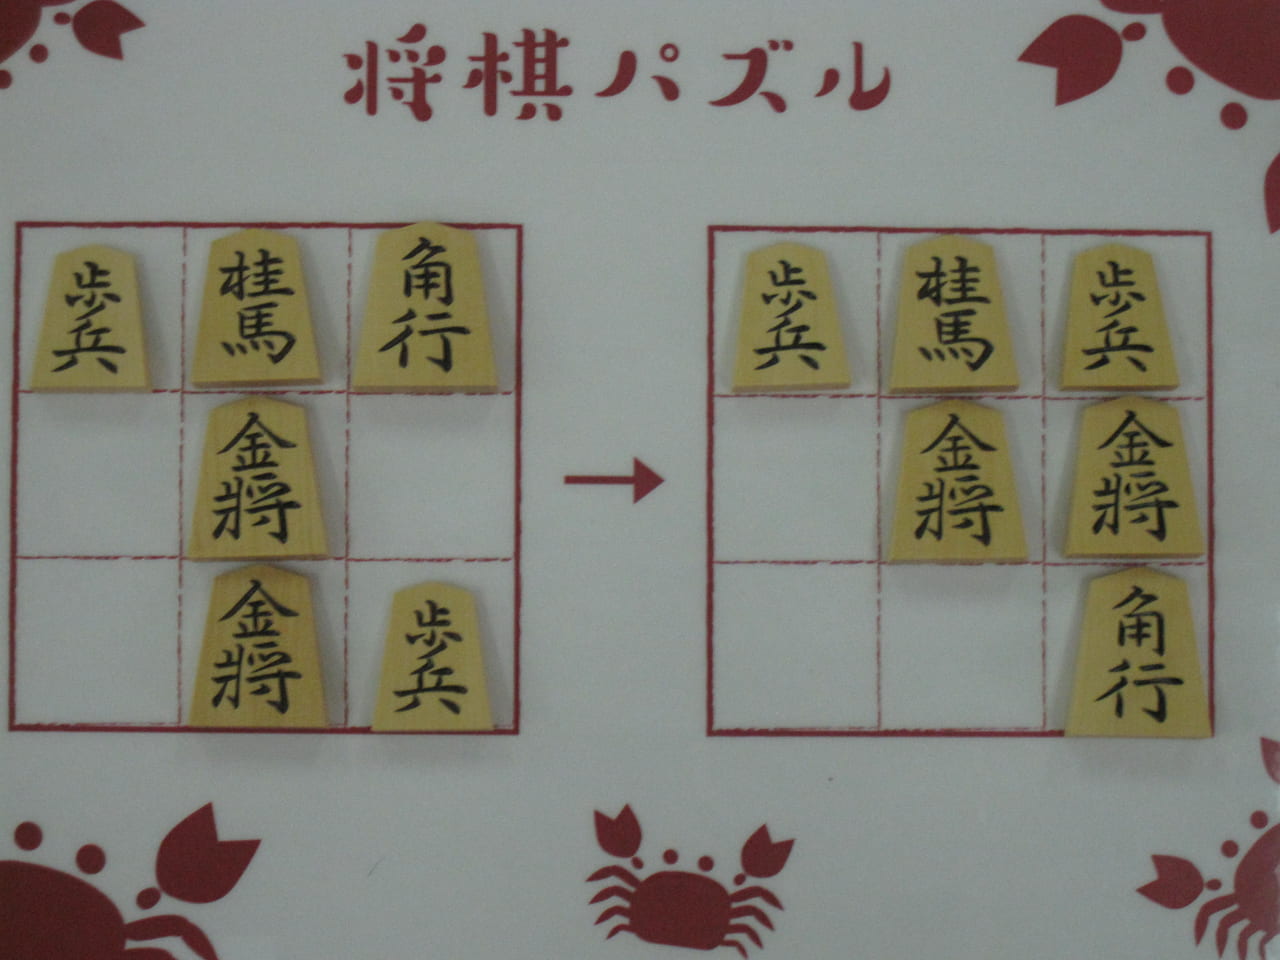 将棋パズル
歩兵 桂馬 角行
金將
金將 歩兵
歩兵 桂馬 歩兵
金將 金將
角行